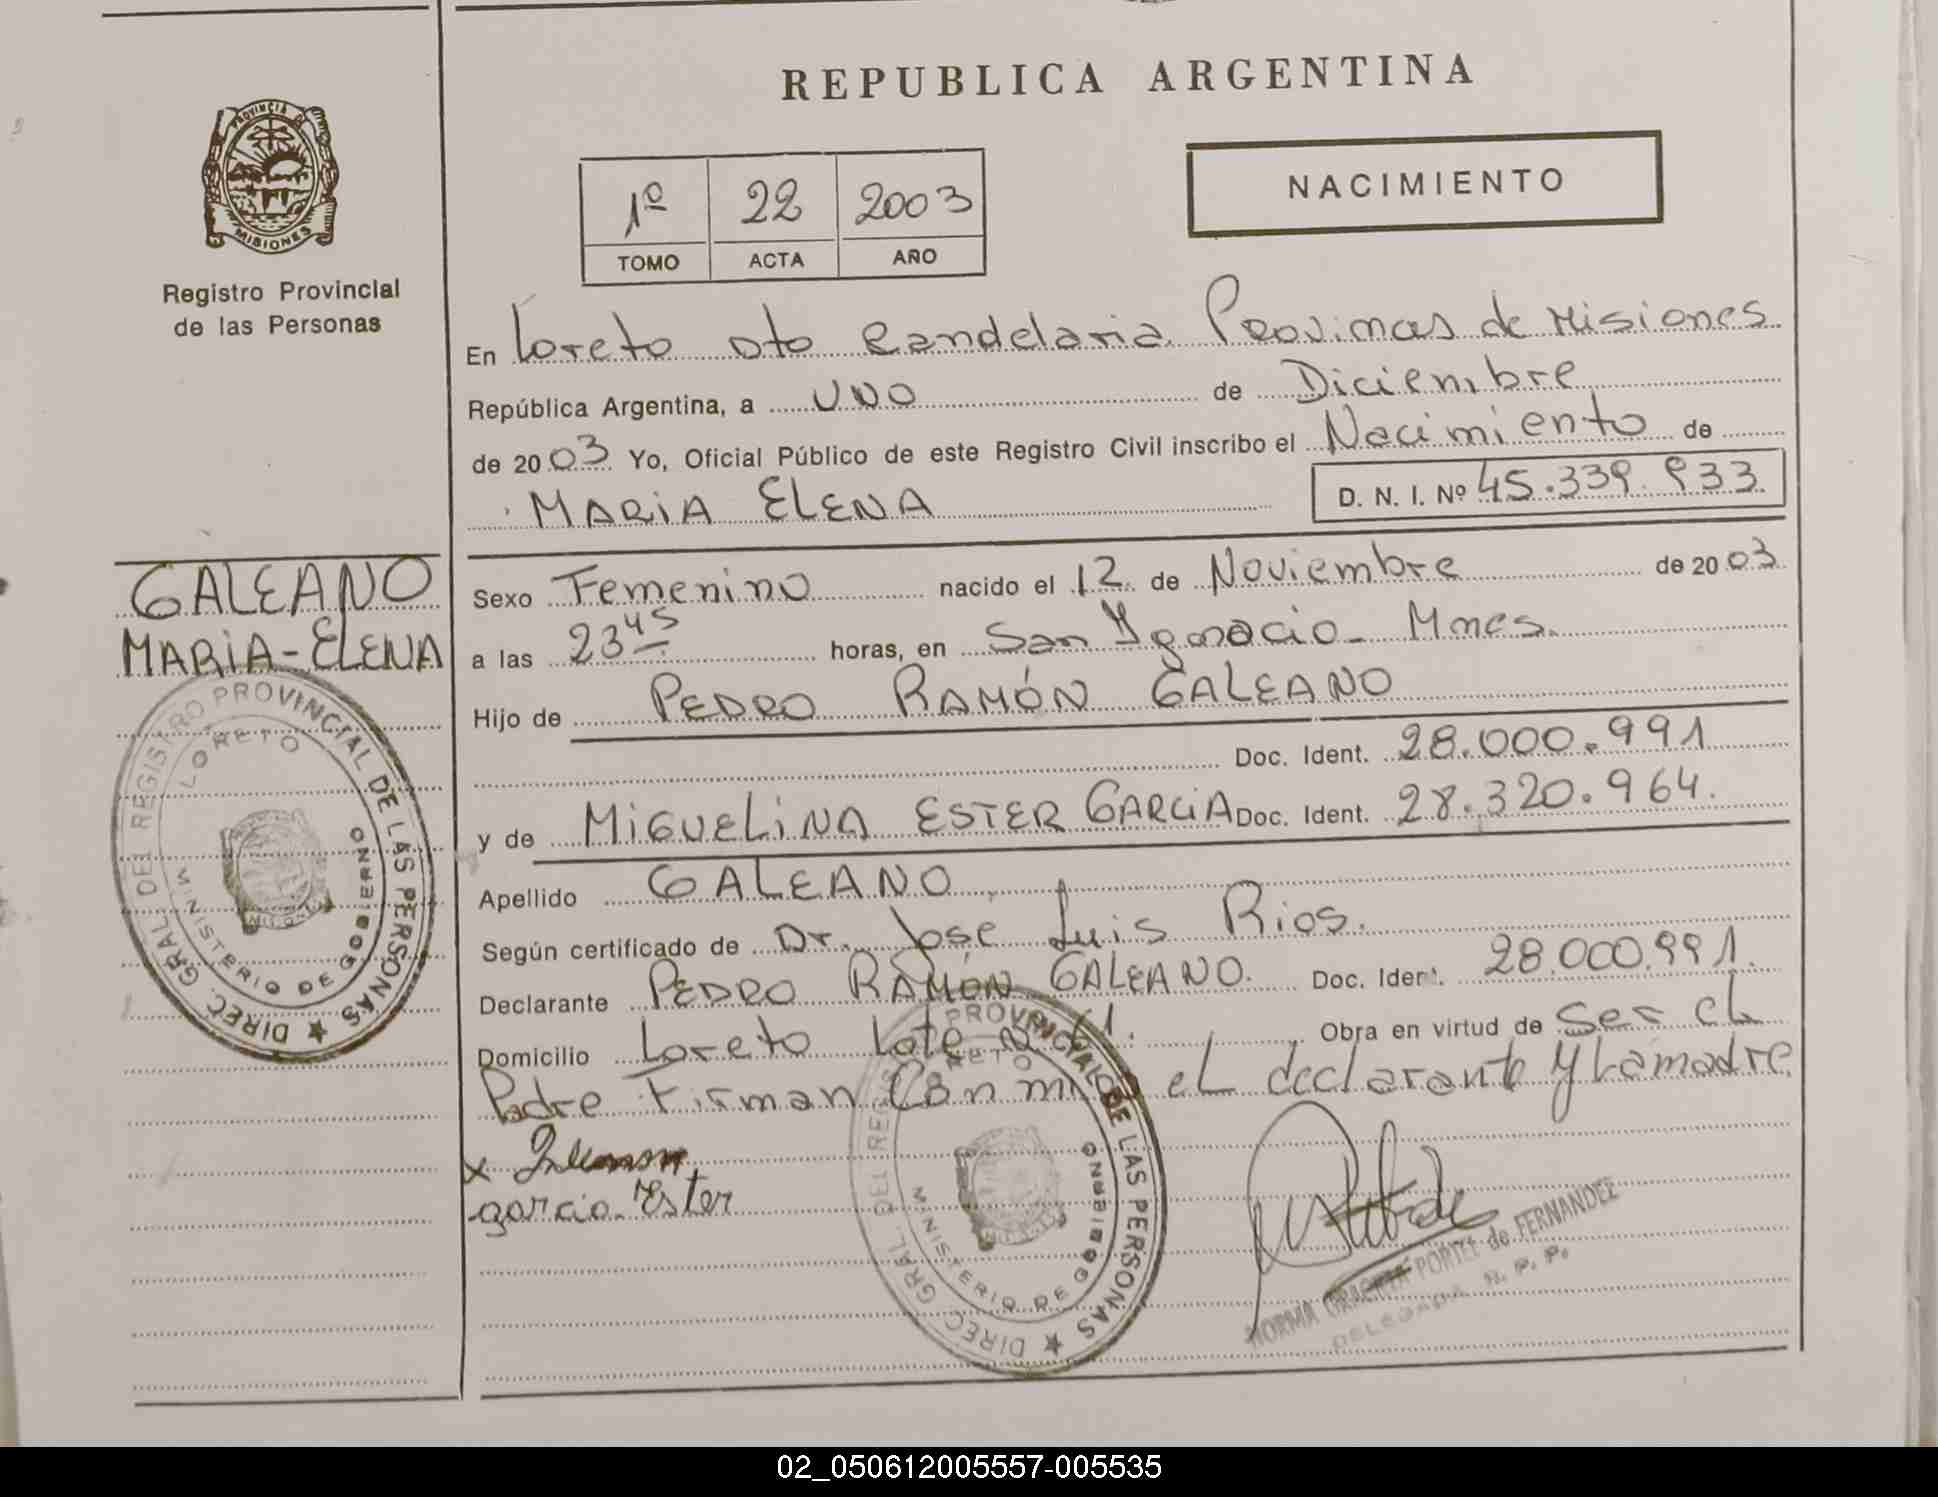 REPUBLICA ARGENTINA
PROVINCIA DE
MISIONES
Registro Provincial
de las Personas
1º 22 2003
TOMO ACTA AÑO
NACIMIENTO
En Loreto Dto Candelaria Provincias de Misiones
República Argentina, a UNO de Diciembre
de 2003 Yo, Oficial Público de este Registro Civil inscribo el Nacimiento de
MARIA ELENA D. N. I. Nº 45.339.933
GALEANO
MARIA-ELENA
Sexo Femenino nacido el 12 de Noviembre de 2003
a las 23 45 horas, en San Ygnacio - Mnes.
Hijo de PEDRO RAMÓN GALEANO
Doc. Ident. 28.000.991
y de MIGUELINA ESTER GARCIA Doc. Ident. 28.320.964.
Apellido GALEANO
Según certificado de Dr. Jose Luis Rios.
Declarante PEDRO RAMÓN GALEANO. Doc. Ident. 28.000.991.
Domicilio Loreto Lote Obra en virtud de Ser el
Padre Firman Con mi el declarante y La madre
garcia Ester
DIREC. GRAL. DEL REGISTRO PROVINCIAL DE LAS PERSONAS
LORETO
MINISTERIO DE GOBIERNO
DIREC. GRAL. DEL PROVINCIAL DE LAS PERSONAS
MINISTERIO DE GOBIERNO
NORMA GRACIELA PORTEL de FERNANDEZ
DELEGADA R. P. P.
02_050612005557-005535